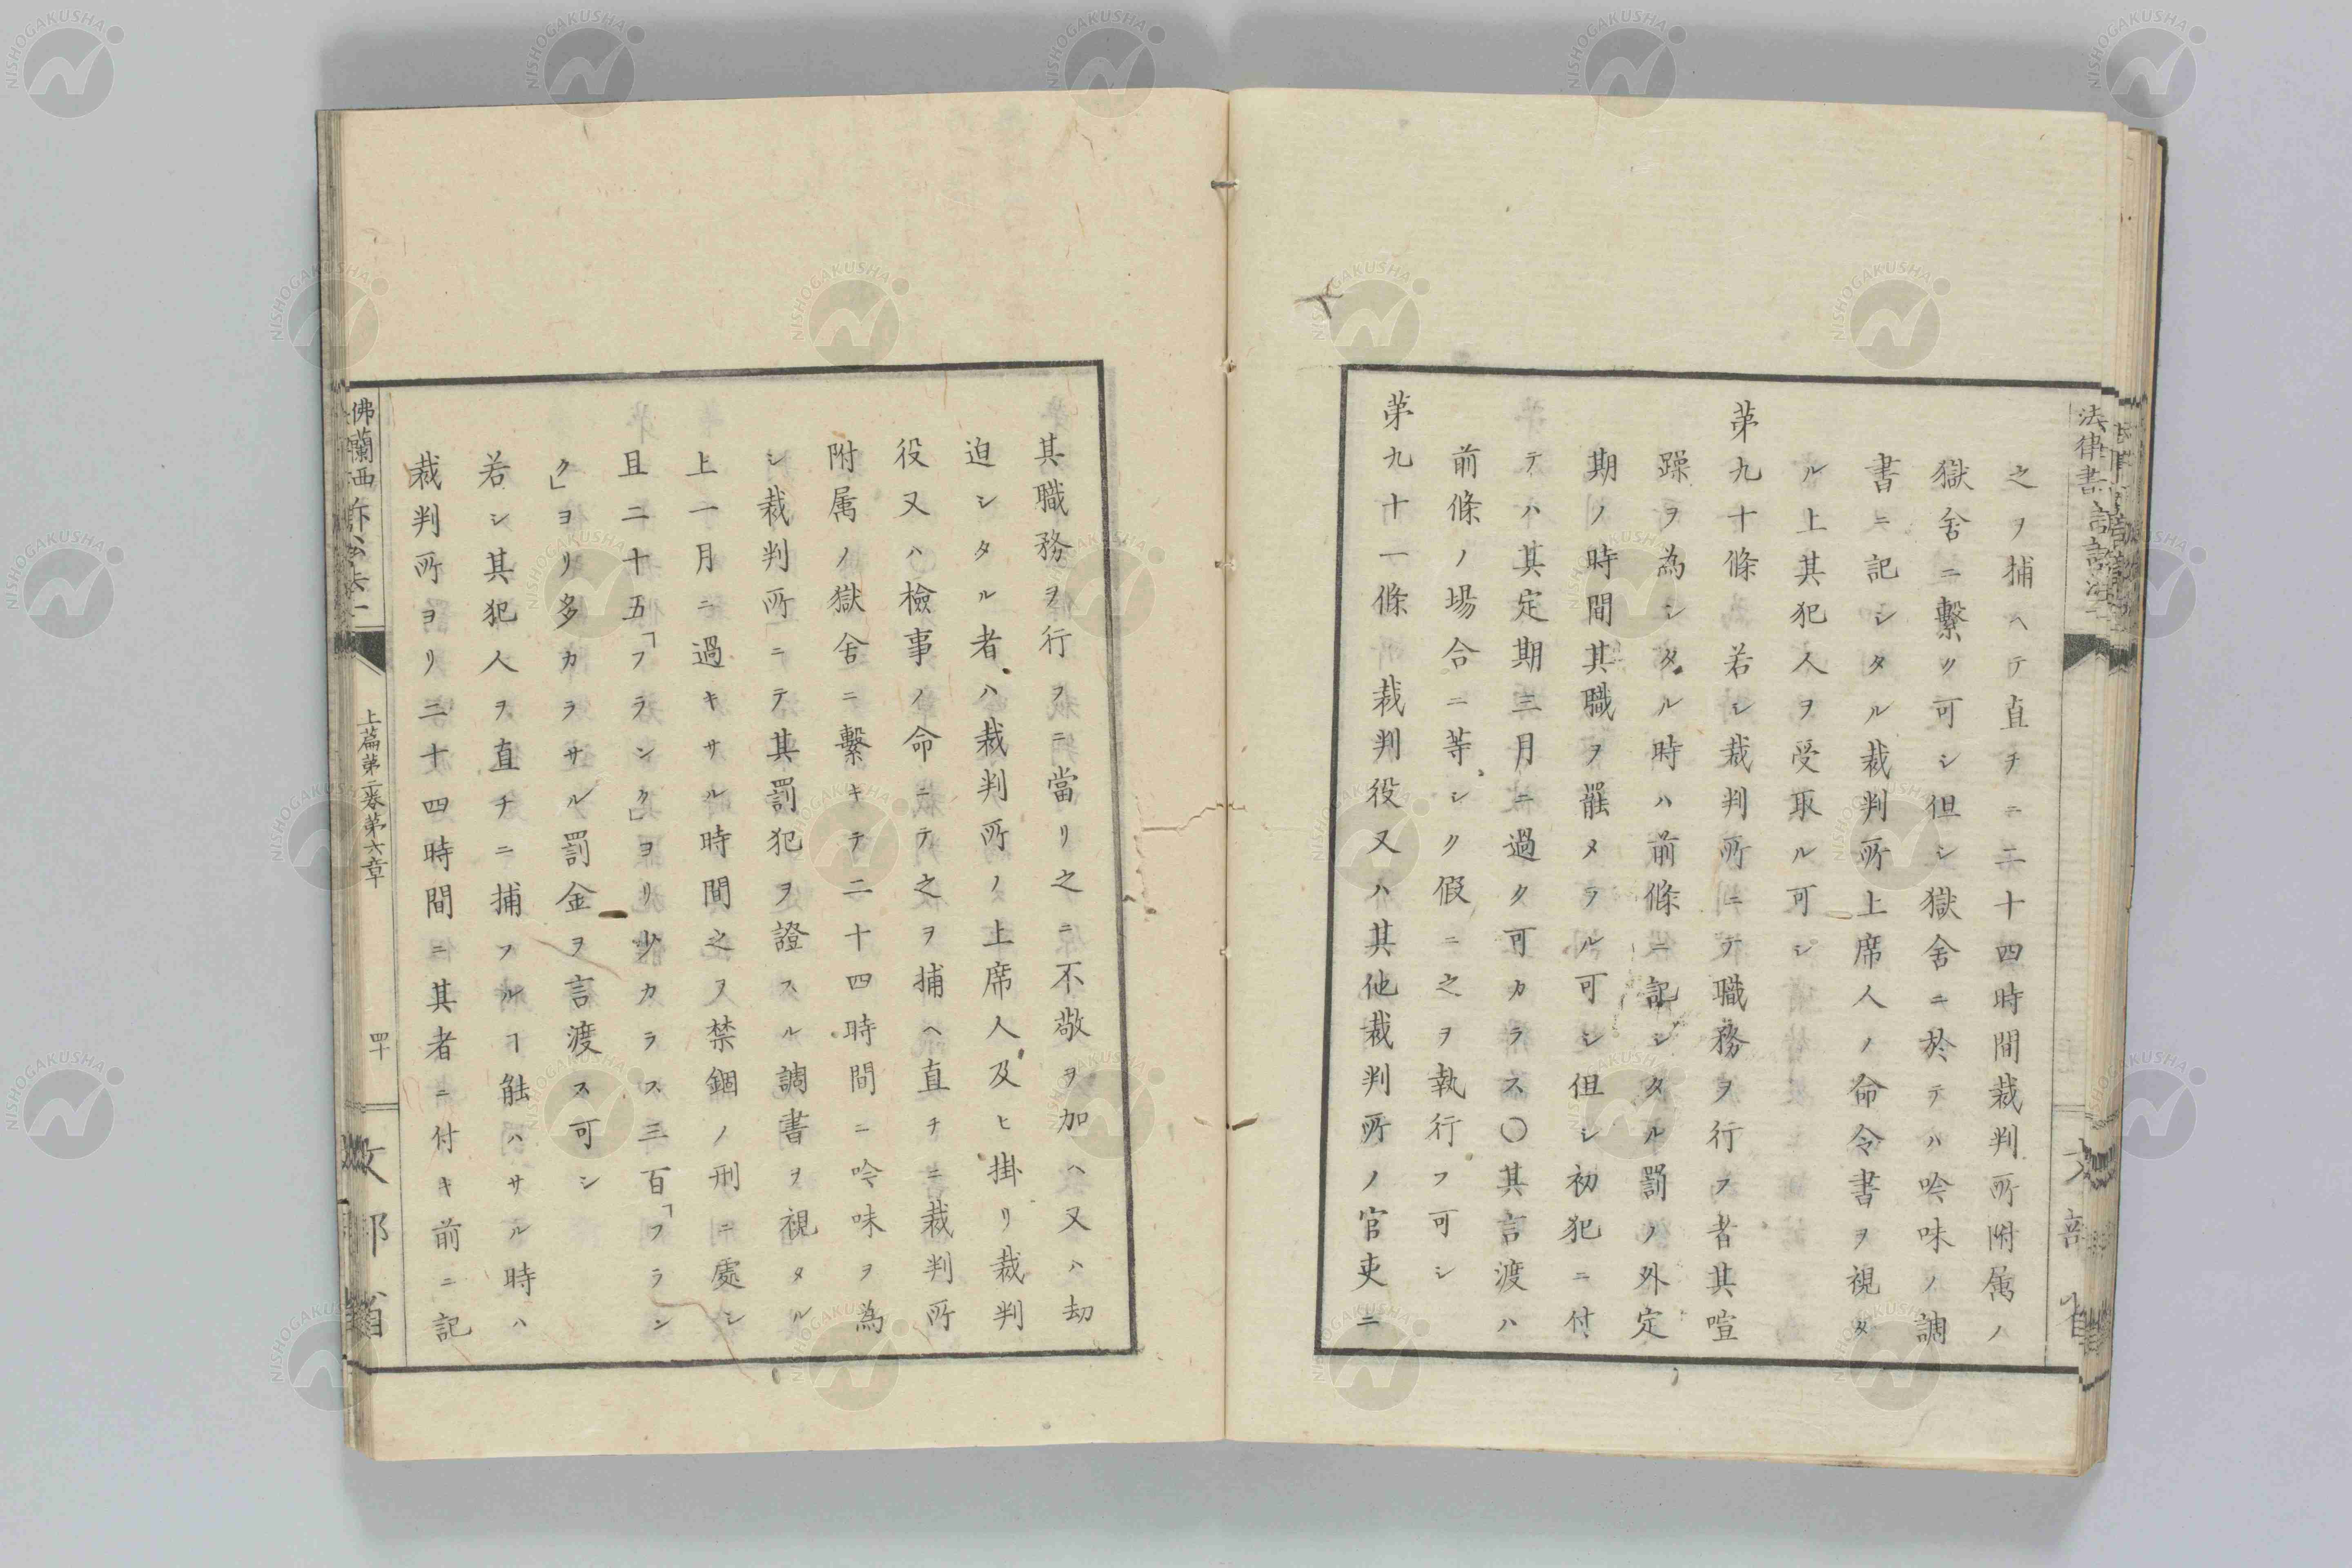 之ヲ捕ヘテ直チニ二十四時間裁判所附属ノ
獄舍ニ繫ク可シ但シ獄舍ニ於テハ吟味ノ調
書ニ記シタル裁判所上席人ノ命令書ヲ視タ
ル上其犯人ヲ受取ル可シ
苐九十條 若シ裁判所ニテ職務ヲ行フ者其喧
躁ヲ為シタル時ハ前條ニ記シタル罰ノ外定
期ノ時間其職ヲ罷メラル可シ但シ初犯ニ付
テハ其定期三月ニ過ク可カラス〇其言渡ハ
前條ノ場合ニ等シク假ニ之ヲ執行フ可シ
苐九十一條 裁判役又ハ其他裁判所ノ官吏ニ
其職務ヲ行フニ當リ之ニ不敬ヲ加ヘ又ハ劫
迫シタル者ハ裁判所ノ上席人及ヒ掛リ裁判
役又ハ檢事ノ命ニテ之ヲ捕ヘ直チニ裁判所
附属ノ獄舍ニ繫キテ二十四時間ニ吟味ヲ為
シ裁判所ニテ其罰犯ヲ證スル調書ヲ視タル
上一月ニ過キサル時間之ヲ禁錮ノ刑ニ處シ
且二十五「フランク」ヨリ少カラス三百「フラン
ク」ヨリ多カラサル罰金ヲ言渡ス可シ
若シ其犯人ヲ直チニ捕フルヿ能ハサル時ハ
裁判所ヨリ二十四時間ニ其者ニ付キ前ニ記
佛蘭西訴訟法一
上篇第二巻第六章
四十
文部省
NISHOGAKUSHA